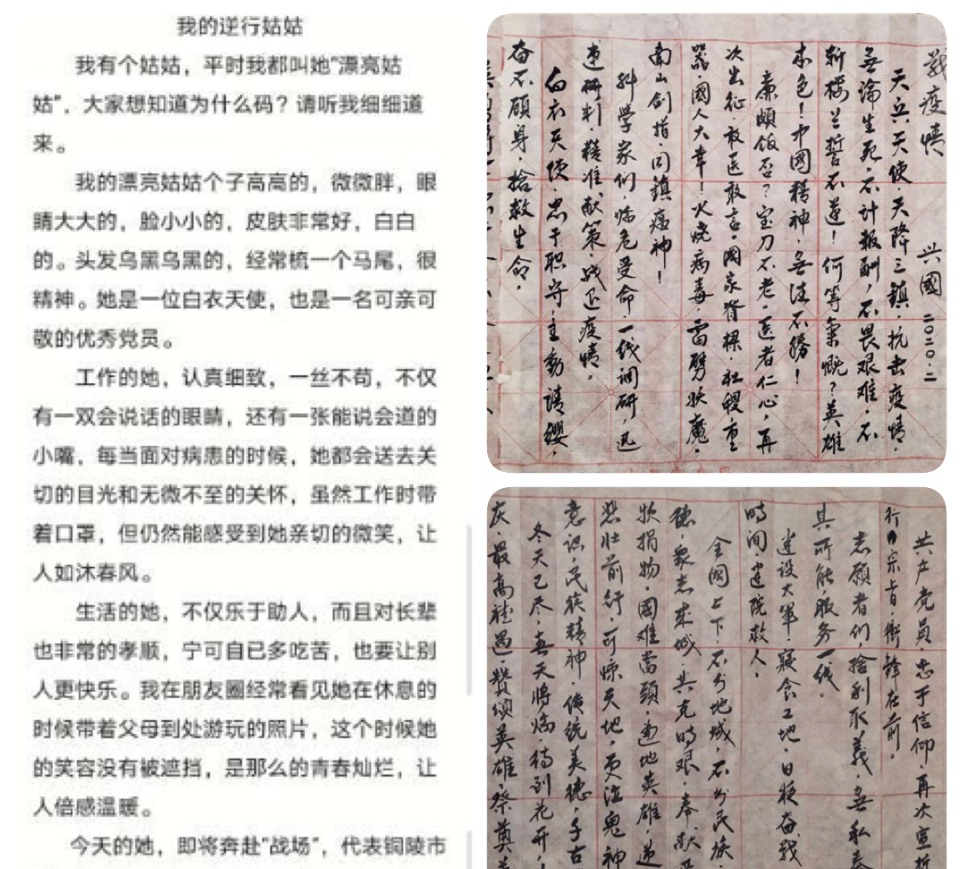 我的逆行姑姑
我有个姑姑，平时我都叫她“漂亮姑
姑”，大家想知道为什么码？请听我细细道
来。
我的漂亮姑姑个子高高的，微微胖，眼
睛大大的，脸小小的，皮肤非常好，白白
的。头发乌黑乌黑的，经常梳一个马尾，很
精神。她是一位白衣天使，也是一名可亲可
敬的优秀党员。
工作的她，认真细致，一丝不苟，不仅
有一双会说话的眼睛，还有一张能说会道的
小嘴，每当面对病患的时候，她都会送去关
切的目光和无微不至的关怀，虽然工作时带
着口罩，但仍然能感受到她亲切的微笑，让
人如沐春风。
生活的她，不仅乐于助人，而且对长辈
也非常的孝顺，宁可自已多吃苦，也要让别
人更快乐。我在朋友圈经常看见她在休息的
时候带着父母到处游玩的照片，这个时候她
的笑容没有被遮挡，是那么的青春灿烂，让
人倍感温暖。
今天的她，即将奔赴“战场”，代表铜陵市
戰疫情 兴國 二〇二〇.二
天兵天使，天降三鎮，抗击疫情，
無論生死，不计報酬，不畏艰难，不
斩楼兰誓不還！何等氣慨？英雄
本色！中國精神，無往不勝！
廉頗飯否？宝刀不老，医者仁心，再
次出征，敢医敢言，國家脊樑，社稷重
器，國人大幸！火烧病毒，雷劈妖魔，
南山剑指，同鎮瘟神！
科學家们，临危受命，一线调研，迅
速研判，精准献策，战退疫情。
白衣天使，忠于职守，主動請纓，
奋不顾身，搶救生命。
共产党员，忠于信仰，再次宣誓
宗旨，衝鋒在前。
志願者们，捨利取義，無私奉
其所能，服务一线。
建设大軍，寝食工地，日夜奋戰
時间，建院救人。
全國上下，不分地域，不分民族，
德，衆志成城，共克時艰，奉献
款捐物，國难當頭，遍地英雄，逆
悲壮前行，可惊天地，更泣鬼神
意识，民族精神，传统美德，千古
冬天已尽，春天将临，待到花开，
庆，最高禮遇，贊颂英雄，祭奠